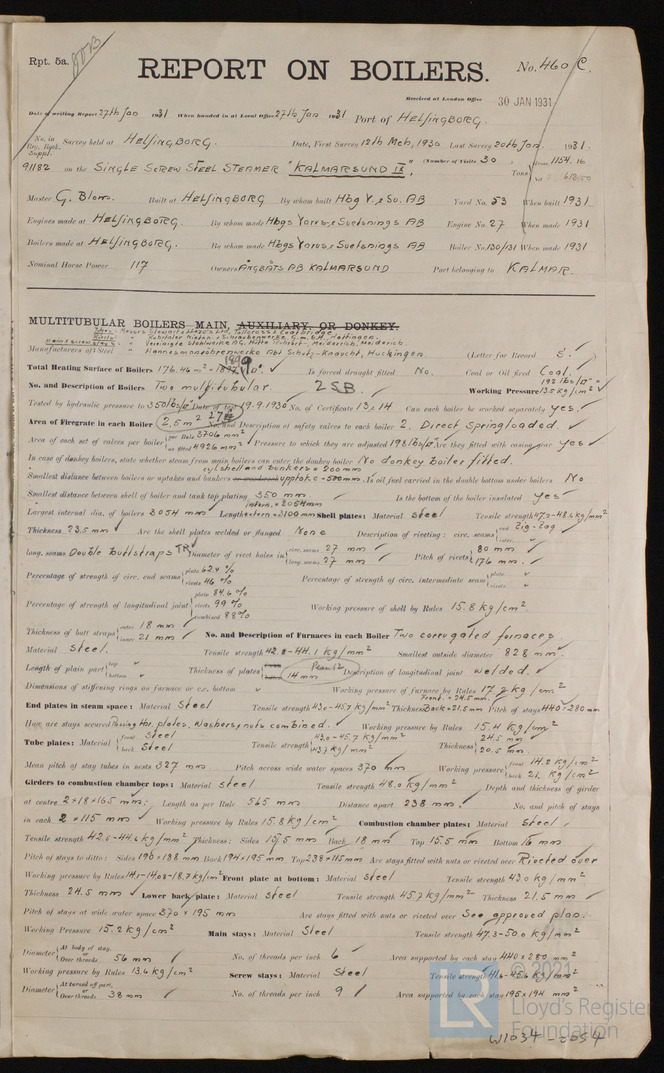 Rpt. 5a.
REPORT ON BOILERS.
No. 460 C.
Received at London Office 30 JAN 1931
Date of writing Report 27th Jan 1931 When handed in at Local Office 27th Jan 1931 Port of HELSINGBORG.
No. in Reg. Book. Survey held at HELSINGBORG. Date, First Survey 12th Mch, 1930 Last Survey 20th Jan. 1931.
Suppl. 91182 on the SINGLE SCREW STEEL STEAMER "KALMARSUND IX" (Number of Visits 30) Tons Gross 1154.16 Net
Master G. Blom. Built at HELSINGBORG By whom built Hbg V. & Sv. AB Yard No. 53 When built 1931
Engines made at HELSINGBORG. By whom made Hbgs Varvs & Svetsnings AB Engine No. 27 When made 1931
Boilers made at HELSINGBORG. By whom made Hbgs Varvs & Svetsnings AB Boiler No. 130/131 When made 1931
Nominal Horse Power 117 Owners ÅNGBÅTS AB KALMARSUND Port belonging to KALMAR.
MULTITUBULAR BOILERS MAIN, AUXILIARY, OR DONKEY.
Manufacturers of Steel Mannesmannröhrenwerke Abt Schulz-Knaudt, Huckingen (Letter for Record S.)
Total Heating Surface of Boilers 176.46 m² = 1899 □'. Is forced draught fitted No. Coal or Oil fired Coal.
No. and Description of Boilers Two multitubular. 2SB. Working Pressure 192 lbs/□" = 13.5 kg/cm²
Tested by hydraulic pressure to 350 lbs/□" Date of test 19.9.1930 No. of Certificate 13 & 14 Can each boiler be worked separately yes.
Area of Firegrate in each Boiler 2,5 m² 27 □' No. and Description of safety valves to each boiler 2. Direct Springloaded.
Area of each set of valves per boiler per Rule 3706 mm² as fitted 4926 mm² Pressure to which they are adjusted 198 lbs/□" Are they fitted with easing gear yes
In case of donkey boilers, state whether steam from main boilers can enter the donkey boiler No donkey boiler fitted.
cyl. shell and bunkers = 200 mm
Smallest distance between boilers or uptakes and bunkers or woodwork uptake - 500 mm. Is oil fuel carried in the double bottom under boilers No
Smallest distance between shell of boiler and tank top plating 350 mm Is the bottom of the boiler insulated yes
Largest internal dia. of boilers 3054 mm Length extern = 3100 mm Shell plates: Material steel Tensile strength 47.2-48.6 kg/mm²
Thickness 23.5 mm Are the shell plates welded or flanged None Description of riveting: circ. seams end Zig-Zag inter.
long. seams Double buttstraps TR Diameter of rivet holes in circ. seams 27 mm long. seams 27 mm Pitch of rivets 80 mm 176 mm
Percentage of strength of circ. end seams plate 62.4 % rivets 46 % Percentage of strength of circ. intermediate seam plate rivets
Percentage of strength of longitudinal joint plate 84.6 % rivets 99 % combined 88 % Working pressure of shell by Rules 15.8 kg/cm².
Thickness of butt straps outer 18 mm inner 21 mm No. and Description of Furnaces in each Boiler Two corrugated furnaces
Material Steel. Tensile strength 42.8-44.1 kg/mm² Smallest outside diameter 828 mm.
Length of plain part top bottom Thickness of plates crown bottom 14 mm Description of longitudinal joint welded.
Dimensions of stiffening rings on furnace or c.c. bottom Working pressure of furnace by Rules 17.2 kg/cm²
End plates in steam space: Material Steel Tensile strength 43.0-45.7 kg/mm² Thickness Front = 24.5 mm Back = 21.5 mm Pitch of stays 440 × 280 mm
How are stays secured Passing thr. plates, washers, nuts combined. Working pressure by Rules 15.4 kg/cm²
Tube plates: Material front Steel back Steel Tensile strength 43.0-45.7 kg/mm² 43.7 kg/mm² Thickness 24.5 mm 20.5 mm.
Mean pitch of stay tubes in nests 327 mm Pitch across wide water spaces 370 mm Working pressure front 14.2 kg/cm² back 21. kg/cm²
Girders to combustion chamber tops: Material steel Tensile strength 48.0 kg/mm² Depth and thickness of girder
at centre 2×18×165 mm; Length as per Rule 565 mm Distance apart 238 mm. No. and pitch of stays
in each 2 × 115 mm Working pressure by Rules 15.8 kg/cm² Combustion chamber plates: Material Steel.
Tensile strength 42.6-44.6 kg/mm² Thickness: Sides 15.5 mm Back 18 mm Top 15.5 mm Bottom 16 mm
Pitch of stays to ditto: Sides 190 × 188 mm Back 194 × 195 mm Top 238 × 115 mm Are stays fitted with nuts or riveted over Riveted over
Working pressure by Rules 14.1-14.08-18.7 kg/cm² Front plate at bottom: Material Steel Tensile strength 43.0 kg/mm²
Thickness 24.5 mm Lower back plate: Material Steel Tensile strength 45.7 kg/mm² Thickness 21.5 mm
Pitch of stays at wide water space 370 × 195 mm Are stays fitted with nuts or riveted over See approved plan.
Working Pressure 15.2 kg/cm² Main stays: Material Steel Tensile strength 47.3-50.0 kg/mm²
Diameter At body of stay, or Over threads 56 mm No. of threads per inch 6 Area supported by each stay 440 × 280 mm²
Working pressure by Rules 13.6 kg/cm² Screw stays: Material Steel Tensile strength 41.6-45.6 kg/mm²
Diameter At turned off part, or Over threads 38 mm No. of threads per inch 9 Area supported by each stay 195 × 194 mm²
© 2021
LR Lloyd's Register Foundation
W1034-0054